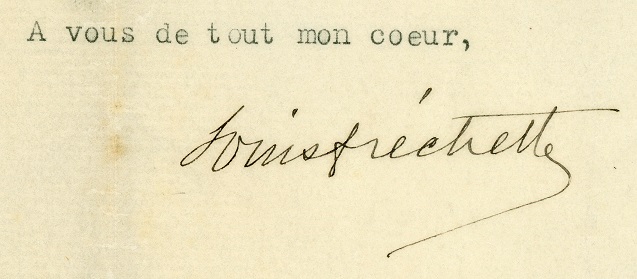 A vous de tout mon coeur,
Louis Fréchette